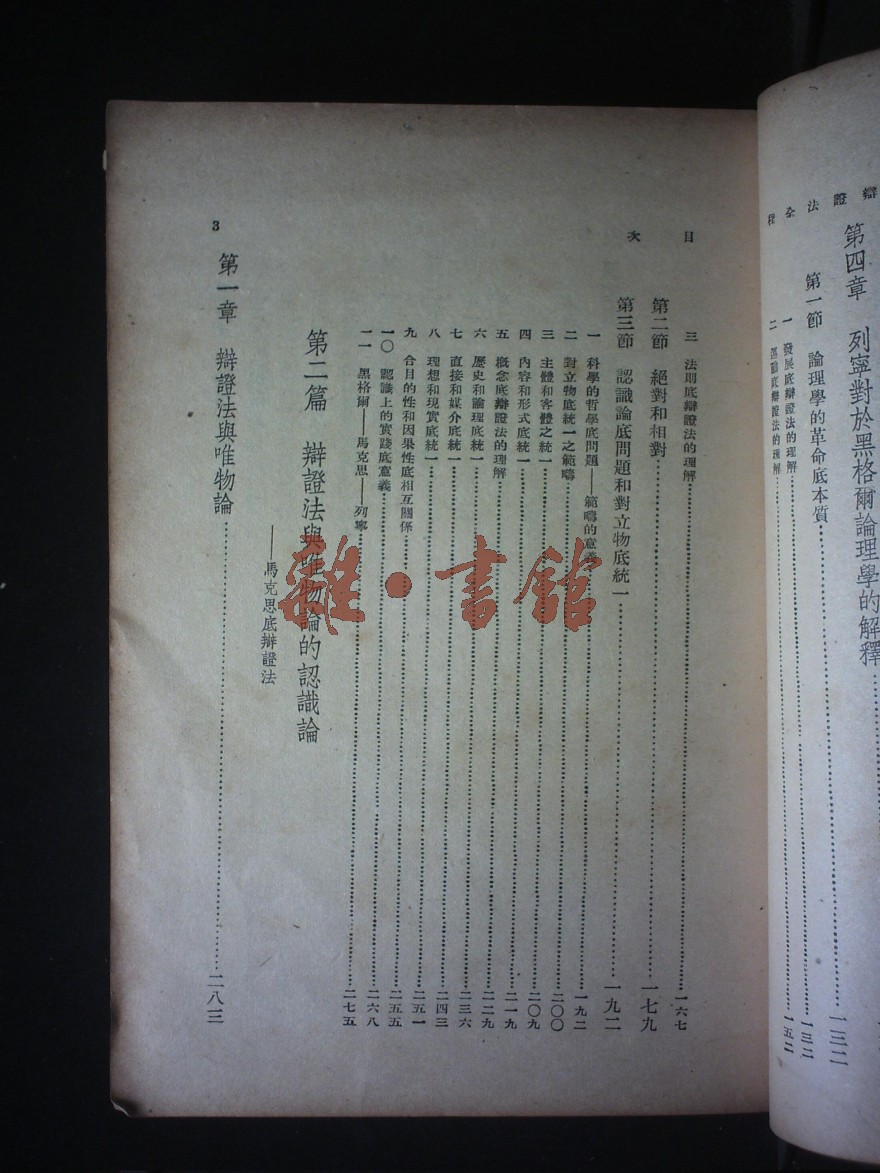 辯證法全程
第四章　列寧對於黑格爾論理學的解釋……一三二
第一節　論理學的革命底本質……一三二
一　發展底辯證法的理解……一五二
二　運動底辯證法的理解
目次
三　法則底辯證法的理解……一六七
第二節　絕對和相對……一七九
第三節　認識論底問題和對立物底統一……一九二
一　科學的哲學底問題——範疇的意義……一九二
二　對立物底統一之範疇……二〇〇
三　主體和客體之統一……二〇九
四　內容和形式底統一……二一九
五　概念底辯證法的理解……二二九
六　歷史和論理底統一……二三六
七　直接和媒介底統一……二四三
八　理想和現實底統一……二五一
九　合目的性和因果性底相互關係……二五五
一〇　認識上的實踐底意義……二六八
一一　黑格爾——馬克思——列寧……二七五
第二篇　辯證法與唯物論的認識論
——馬克思底辯證法
第一章　辯證法與唯物論……二八三
3
雜·書館